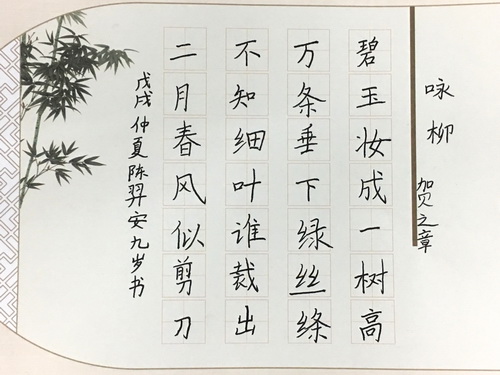 咏柳
贺之章
碧玉妆成一树高
万条垂下绿丝绦
不知细叶谁裁出
二月春风似剪刀
戊戌仲夏陈羿安九岁书